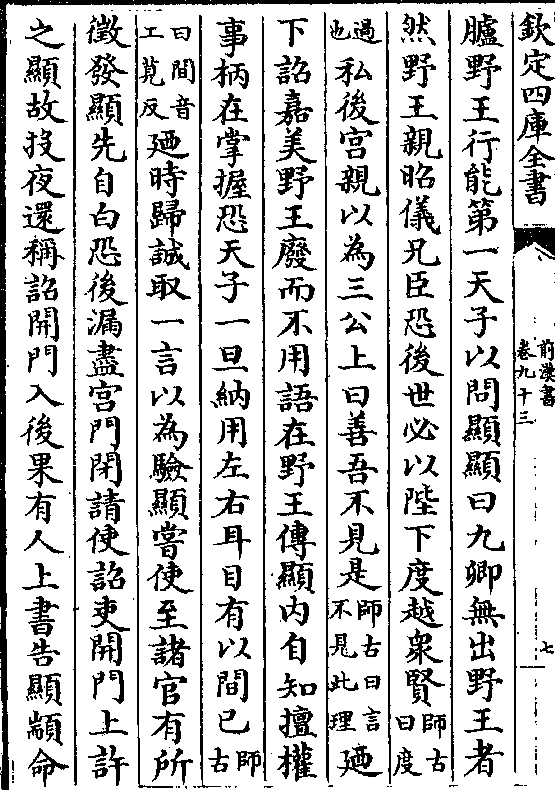 欽定四庫全書
前漢書
卷九十三
七
臚野王行能第一天子以問顯顯曰九卿無出野王者
然野王親昭儀兄臣恐後世必以陛下度越衆賢師古曰度
過也私後宫親以為三公上曰善吾不見是師古曰言不見此理廼
下詔嘉美野王廢而不用語在野王傳顯内自知擅權
事柄在掌握恐天子一旦納用左右耳目有以間已師古
曰間音工莧反廼時歸誠取一言以為驗顯嘗使至諸官有所
徵發顯先自白恐後漏盡宫門閉請使詔吏開門上許
之顯故投夜還稱詔開門入後果有人上書告顯顓命